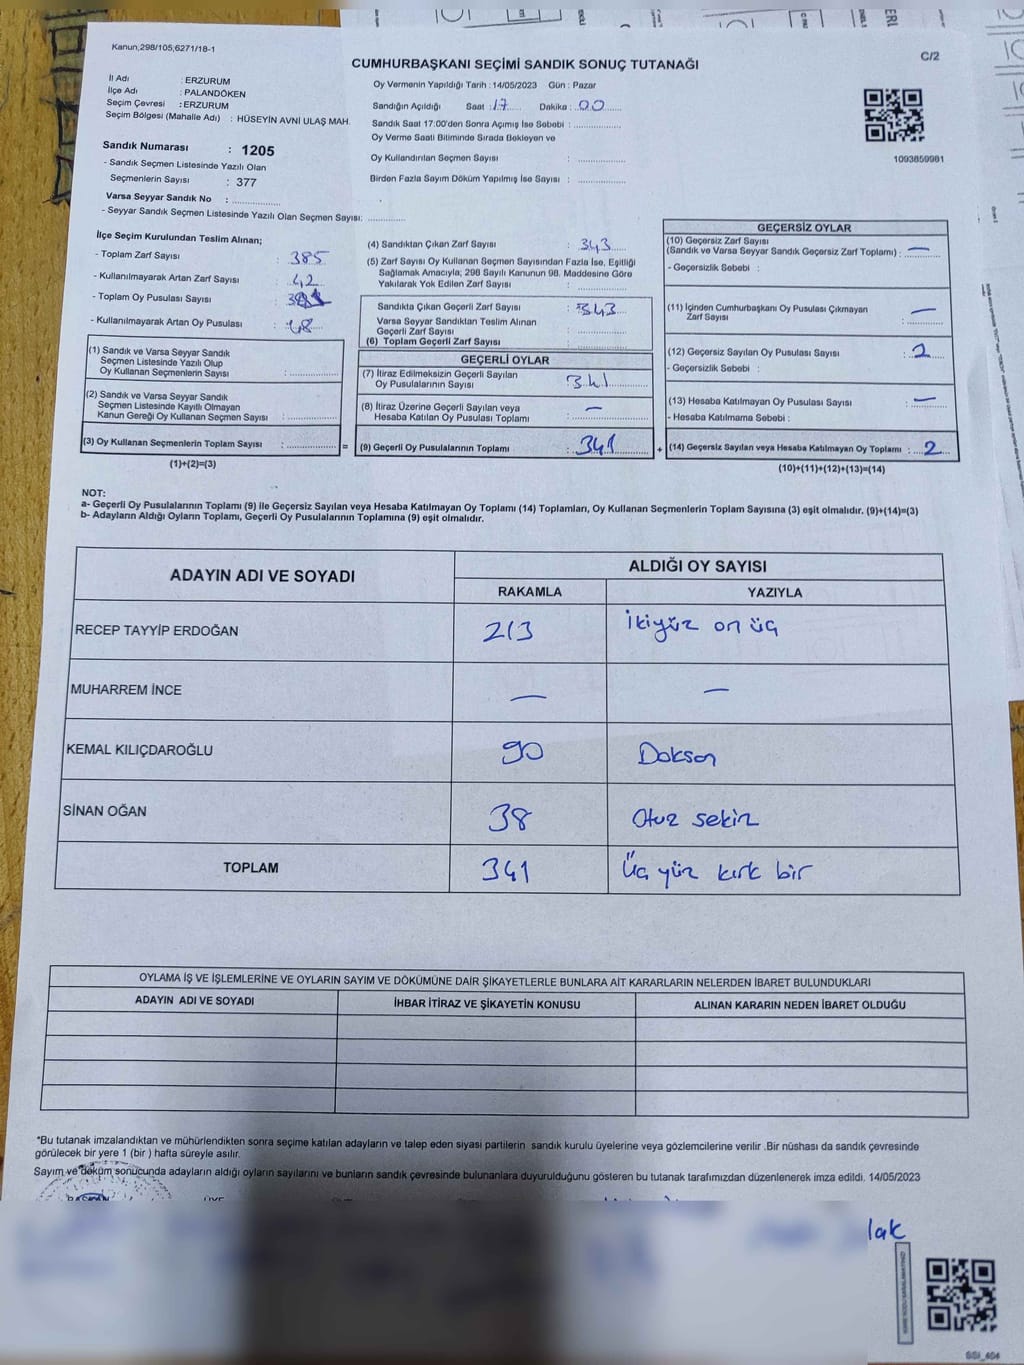 Kanun,298/105,6271/18-1
C/2
CUMHURBAŞKANI SEÇİMİ SANDIK SONUÇ TUTANAĞI
İl Adı : ERZURUM
İlçe Adı : PALANDÖKEN
Seçim Çevresi : ERZURUM
Seçim Bölgesi (Mahalle Adı) : HÜSEYİN AVNİ ULAŞ MAH.
Sandık Numarası : 1205
- Sandık Seçmen Listesinde Yazılı Olan
Seçmenlerin Sayısı : 377
Varsa Seyyar Sandık No :
- Seyyar Sandık Seçmen Listesinde Yazılı Olan Seçmen Sayısı:
Oy Vermenin Yapıldığı Tarih : 14/05/2023 Gün : Pazar
Sandığın Açıldığı Saat : 17 Dakika : 00
Sandık Saat 17:00'den Sonra Açımış İse Sebebi :
Oy Verme Saati Bitiminde Sırada Bekleyen ve
Oy Kullandırılan Seçmen Sayısı :
Birden Fazla Sayım Döküm Yapılmış İse Sayısı :
1093859981
İlçe Seçim Kurulundan Teslim Alınan;
- Toplam Zarf Sayısı : 385
- Kullanılmayarak Artan Zarf Sayısı : 42
- Toplam Oy Pusulası Sayısı :
- Kullanılmayarak Artan Oy Pusulası : 48
(1) Sandık ve Varsa Seyyar Sandık
Seçmen Listesinde Yazılı Olup
Oy Kullanan Seçmenlerin Sayısı :
(2) Sandık ve Varsa Seyyar Sandık
Seçmen Listesinde Kayıtlı Olmayan
Kanun Gereği Oy Kullanan Seçmen Sayısı :
(3) Oy Kullanan Seçmenlerin Toplam Sayısı : =
(1)+(2)=(3)
(4) Sandıktan Çıkan Zarf Sayısı : 343
(5) Zarf Sayısı Oy Kullanan Seçmen Sayısından Fazla İse, Eşitliği
Sağlamak Amacıyla; 298 Sayılı Kanunun 98. Maddesine Göre
Yakılarak Yok Edilen Zarf Sayısı :
Sandıkta Çıkan Geçerli Zarf Sayısı : 343
Varsa Seyyar Sandıktan Teslim Alınan
Geçerli Zarf Sayısı :
(6) Toplam Geçerli Zarf Sayısı :
GEÇERLİ OYLAR
(7) İtiraz Edilmeksizin Geçerli Sayılan
Oy Pusulalarının Sayısı : 341
(8) İtiraz Üzerine Geçerli Sayılan veya
Hesaba Katılan Oy Pusulası Toplamı : —
(9) Geçerli Oy Pusulalarının Toplamı : 341 +
GEÇERSİZ OYLAR
(10) Geçersiz Zarf Sayısı
(Sandık ve Varsa Seyyar Sandık Geçersiz Zarf Toplamı) : —
- Geçersizlik Sebebi :
(11) İçinden Cumhurbaşkanı Oy Pusulası Çıkmayan
Zarf Sayısı : —
(12) Geçersiz Sayılan Oy Pusulası Sayısı : 2
- Geçersizlik Sebebi :
(13) Hesaba Katılmayan Oy Pusulası Sayısı : —
- Hesaba Katılmama Sebebi :
(14) Geçersiz Sayılan veya Hesaba Katılmayan Oy Toplamı : 2
(10)+(11)+(12)+(13)=(14)
NOT:
a- Geçerli Oy Pusulalarının Toplamı (9) ile Geçersiz Sayılan veya Hesaba Katılmayan Oy Toplamı (14) Toplamları, Oy Kullanan Seçmenlerin Toplam Sayısına (3) eşit olmalıdır. (9)+(14)=(3)
b- Adayların Aldığı Oyların Toplamı, Geçerli Oy Pusulalarının Toplamına (9) eşit olmalıdır.
ADAYIN ADI VE SOYADI
ALDIĞI OY SAYISI
RAKAMLA YAZIYLA
RECEP TAYYİP ERDOĞAN 213 İkiyüz on üç
MUHARREM İNCE — —
KEMAL KILIÇDAROĞLU 90 Doksan
SİNAN OĞAN 38 Otuz sekiz
TOPLAM 341 Üç yüz kırk bir
OYLAMA İŞ VE İŞLEMLERİNE VE OYLARIN SAYIM VE DÖKÜMÜNE DAİR ŞİKAYETLERLE BUNLARA AİT KARARLARIN NELERDEN İBARET BULUNDUKLARI
ADAYIN ADI VE SOYADI İHBAR İTİRAZ VE ŞİKAYETİN KONUSU ALINAN KARARIN NEDEN İBARET OLDUĞU
*Bu tutanak imzalandıktan ve mühürlendikten sonra seçime katılan adayların ve talep eden siyasi partilerin sandık kurulu üyelerine veya gözlemcilerine verilir .Bir nüshası da sandık çevresinde
görülecek bir yere 1 (bir ) hafta süreyle asılır.
Sayım ve döküm sonucunda adayların aldığı oyların sayılarını ve bunların sandık çevresinde bulunanlara duyurulduğunu gösteren bu tutanak tarafımızdan düzenlenerek imza edildi. 14/05/2023
BAŞKAN ÜYE
lak